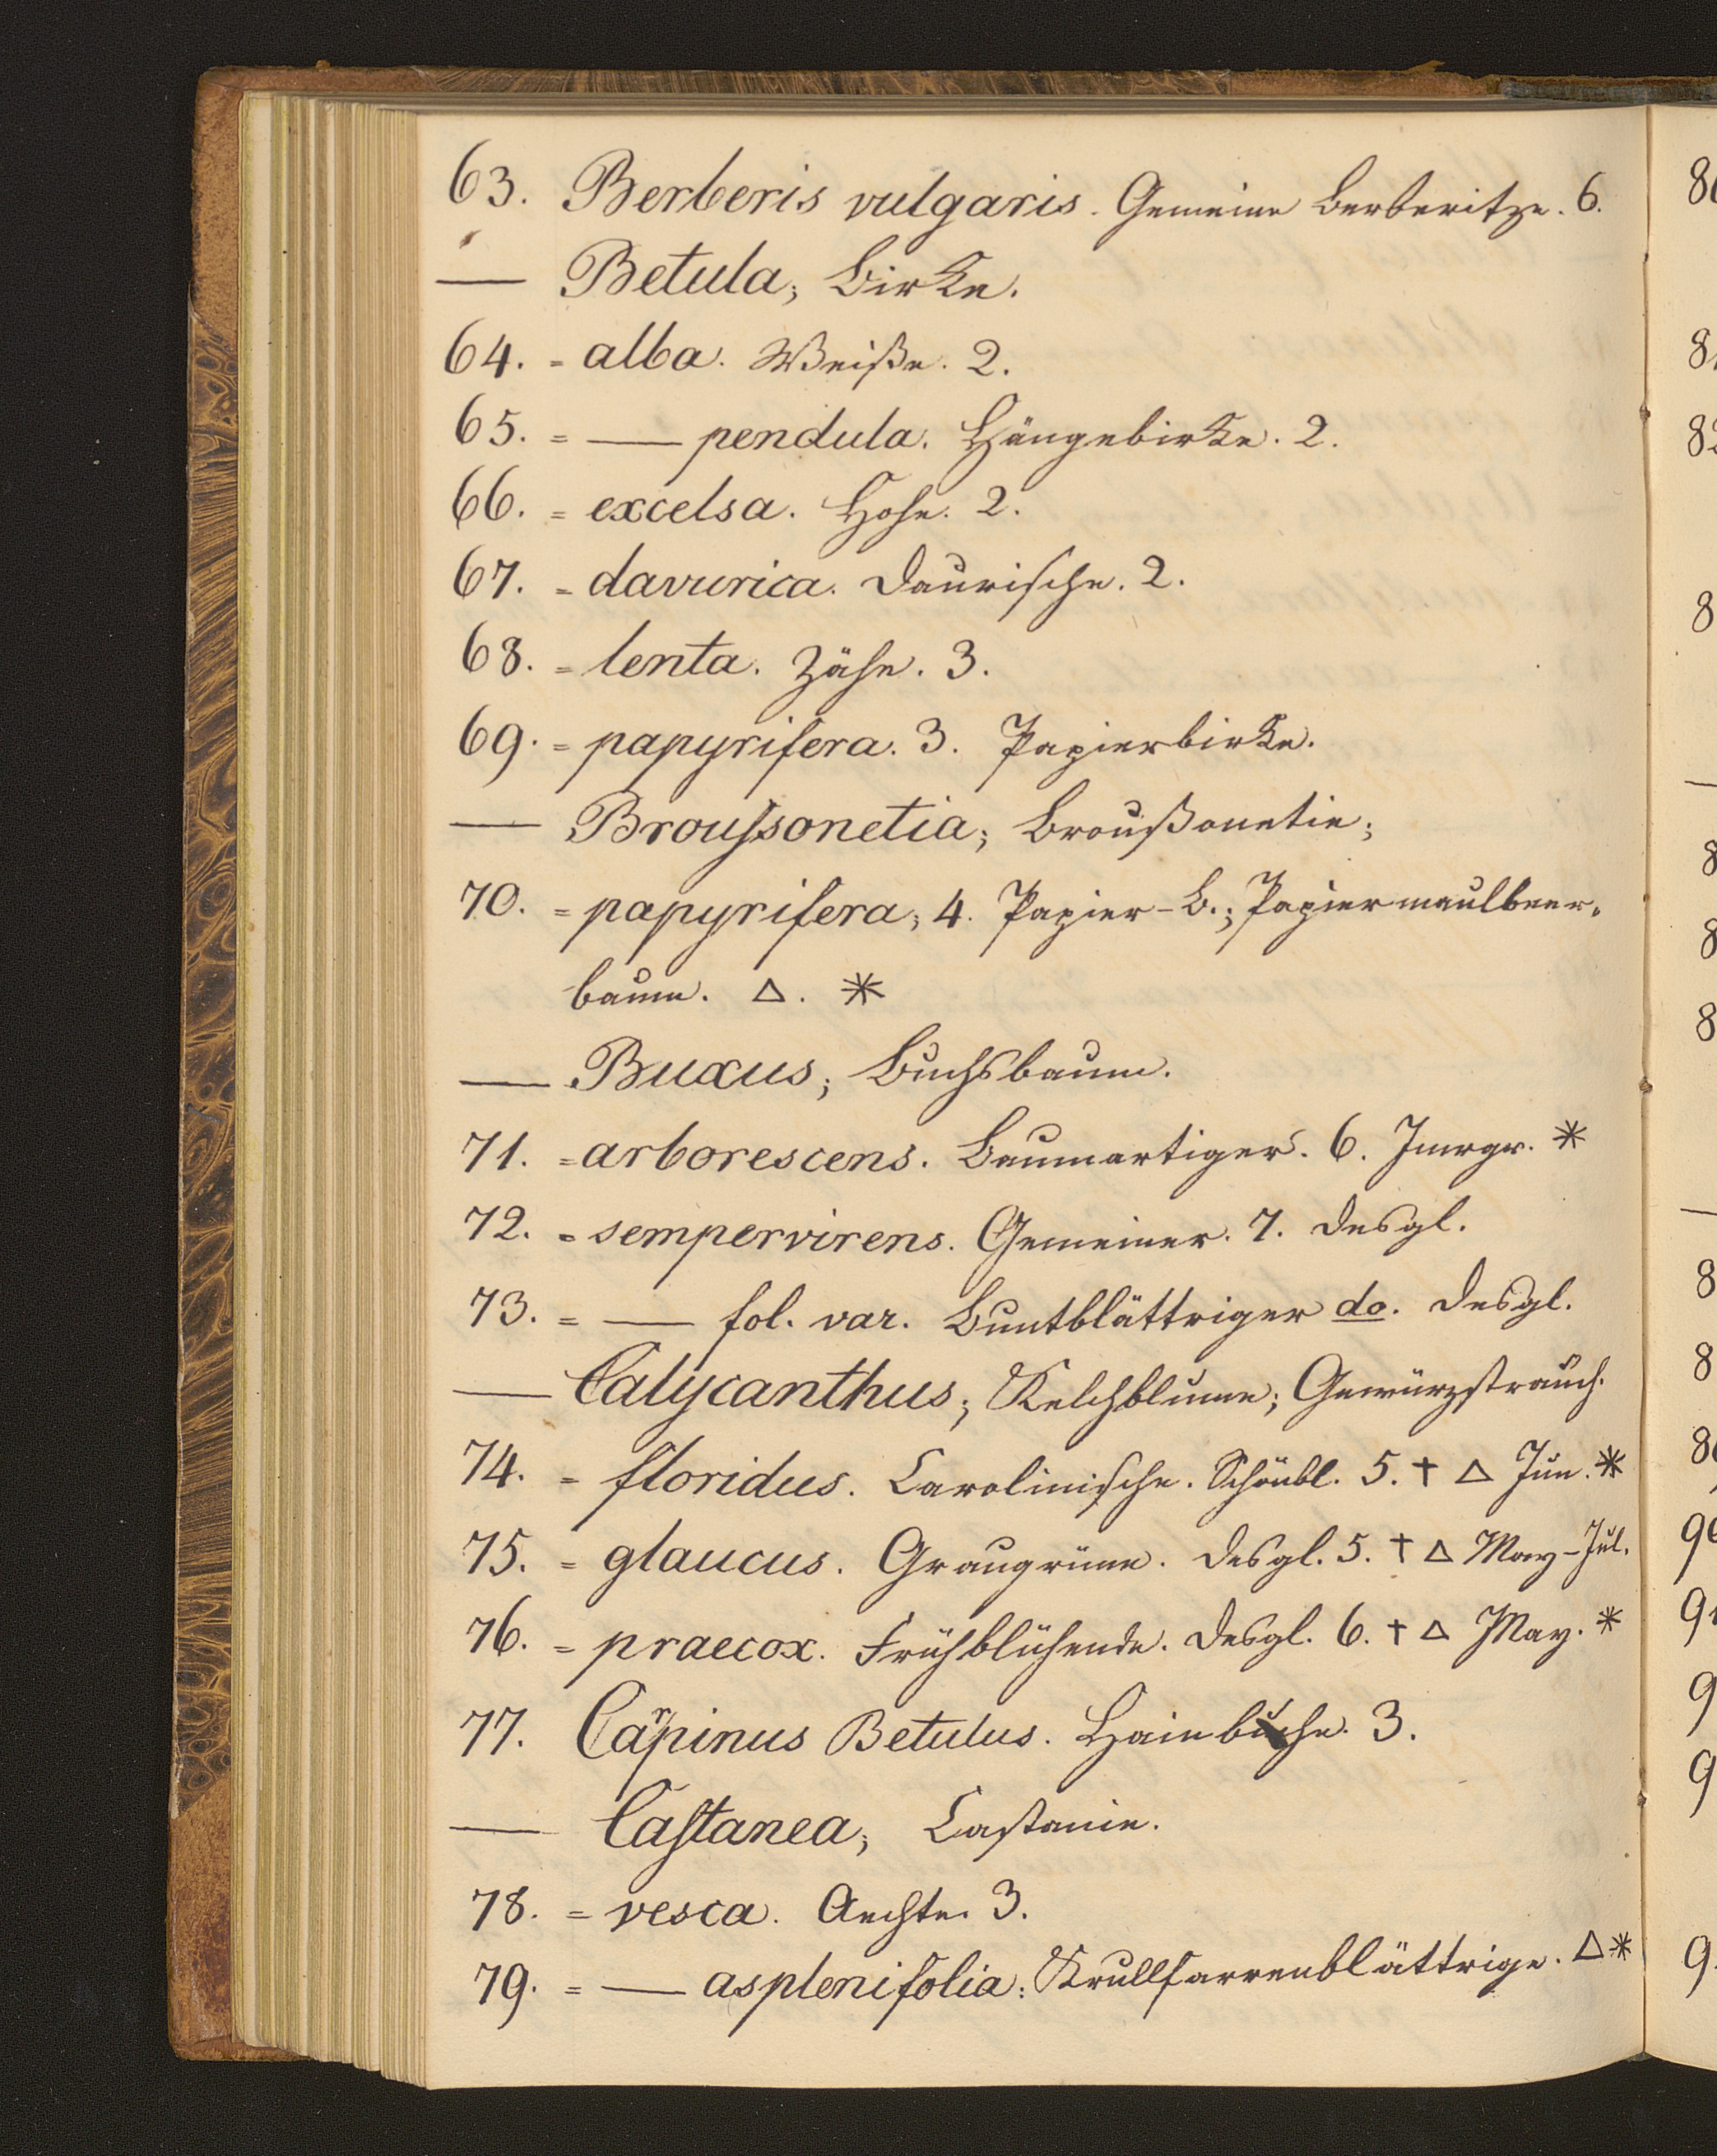 63. Berberis vulgaris. Gemeine Berberitze. 6.
— Betula; Birke.
64. = alba. Weiße. 2.
65. = — pendula. Hängebirke. 2.
66. = excelsa. Hohe. 2.
67. = davurica. Daurische. 2.
68. = lenta. Zähe. 3.
69. = papyrifera. 3. Papierbirke.
— Brouſsonetia; Broußonetie;
70. = papyrifera; 4. Papier-B.; Papiermaulbeer-
baum. △. *
— Buxus; Buchsbaum.
71. = arborescens. Baumartiger. 6. Imrgr. *
72. = sempervirens. Gemeiner. 7. Desgl.
73. = — fol. var. Buntblättriger do. Desgl.
— Calycanthus; Kelchblume; Gewürzstrauch.
74. = floridus. Carolinische. Schönbl. 5. † △ Jun. *
75. = glaucus. Graugrüne. Desgl. 5. † △ May-Jul.
76. = praecox. Frühblühende. Desgl. 6. † △ May. *
77. Carpinus Betulus. Hainbuche. 3.
— Caſtanea; Castanie.
78. = vesca. Aechte. 3.
79. = — asplenifolia. Krullfarrenblättrige. △ *